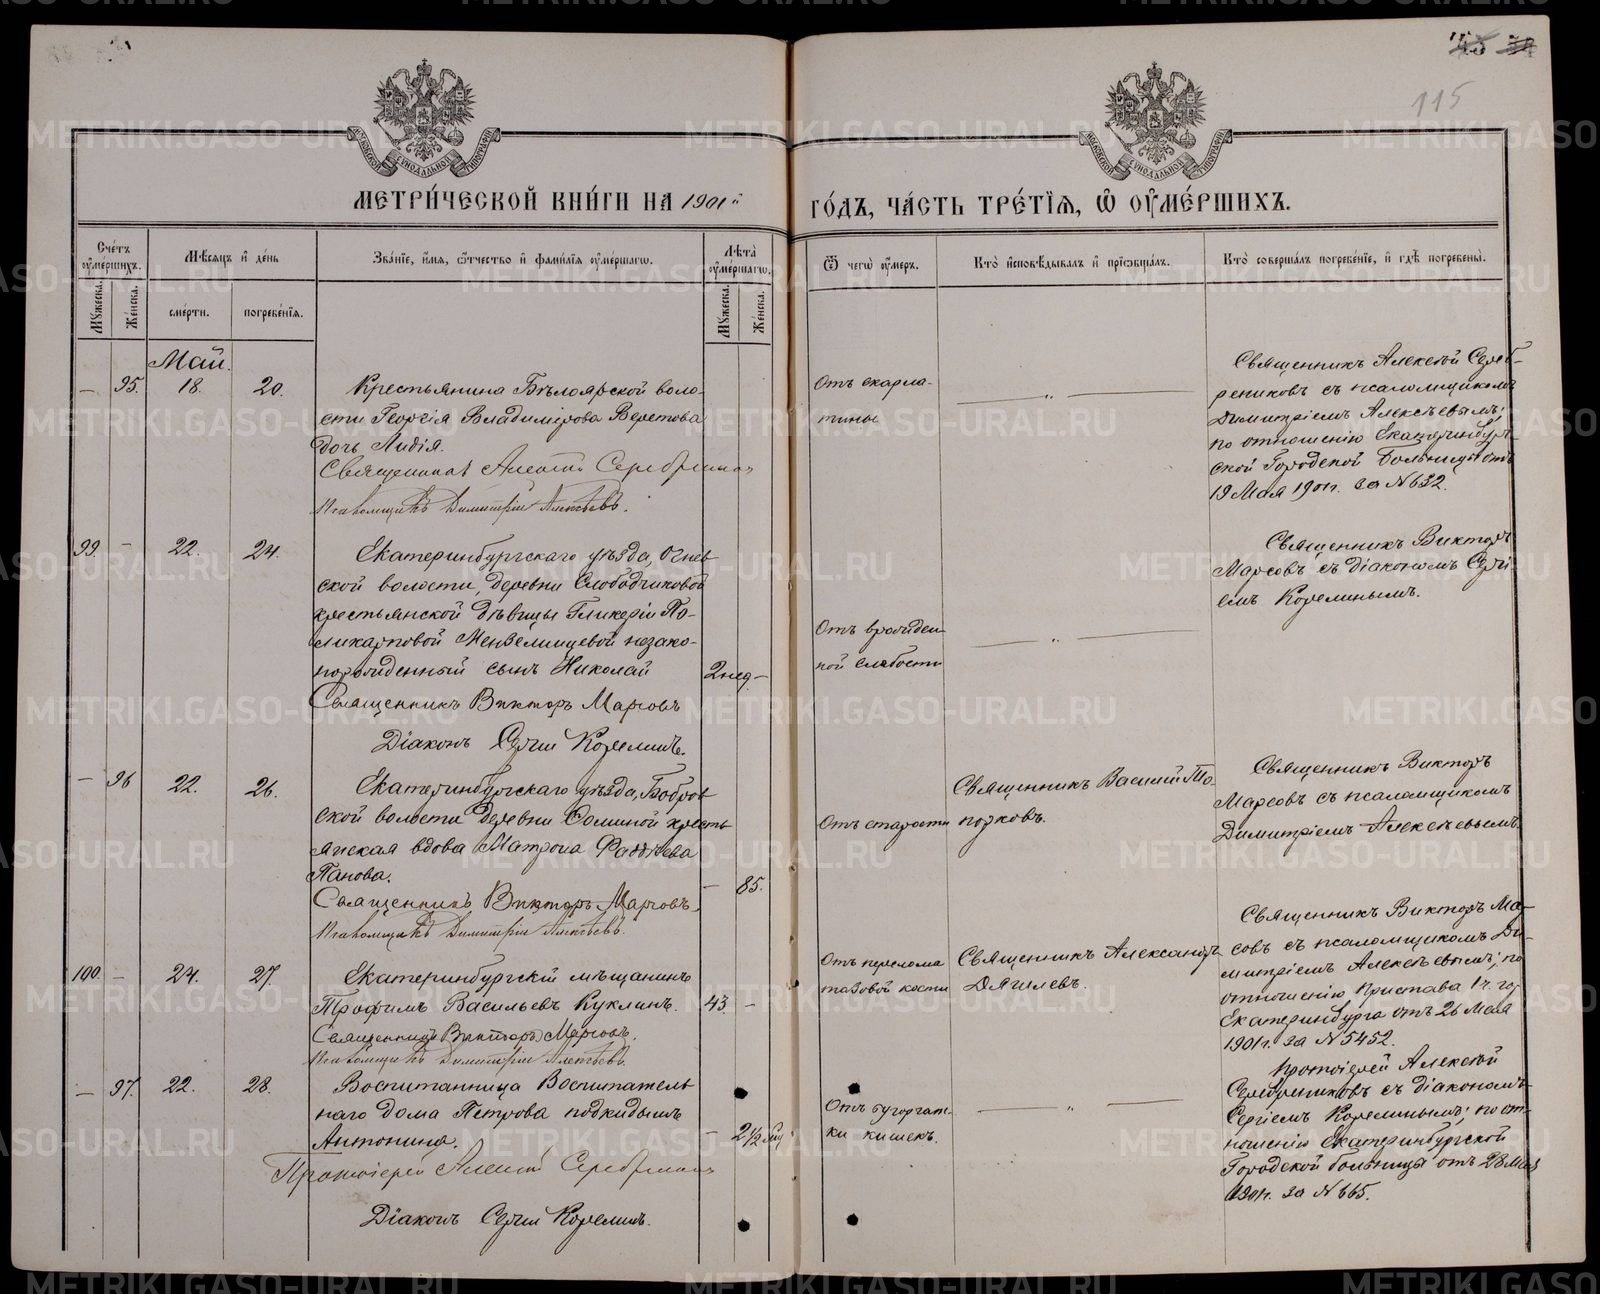 115
МОСКОВСКОЙ СѴНОДАЛЬНОЙ ТИПОГРАФІИ
МОСКОВСКОЙ СѴНОДАЛЬНОЙ ТИПОГРАФІИ
МЕТРИ́ЧЕСКОЙ КНИ́ГИ НА 1901й ГО́ДЪ, ЧА́СТЬ ТРЕ́ТІЯ, Ѡ ОУ҆МЕ́РШИХЪ.
Счетъ оумершихъ.
Мужеска.
Женска.
Мѣсяцъ и день
смерти.
погребенія.
Званіе, имя, отчество и фамилія оумершагѡ.
Лѣта оумершагѡ.
Мужеска.
Женска.
Ѿ чегѡ оумеръ.
Кто исповѣдывалъ и пріобщалъ.
Кто совершалъ погребеніе, и гдѣ погребены.
Май.
— 95. 18. 20.
Крестьянина Бѣлоярской воло-
сти Георгія Владимірова Веретова
дочь Лидія.
Священникъ Алексѣй Серебрениковъ
Псаломщикъ Димитрій Алексѣевъ.
Отъ скарла-
тины
— „ —
Священникъ Алексѣй Сереб-
рениковъ съ псаломщикомъ
Димитріемъ Алексѣевымъ;
по отношенію Екатеринбург-
ской Городской Больницы отъ
19 Мая 1901г. за № 632.
99. - 22. 24.
Екатеринбургскаго уѣзда, Огнев-
ской волости, деревни Слободчиковой
крестьянской дѣвицы Гликеріи По-
ликарповой незако-
норожденный сынъ Николай
2 нед. -
Священникъ Викторъ Марсовъ
Діаконъ Сергій Корелинъ.
Отъ врожден-
ной слабости
— „ —
Священникъ Викторъ
Марсовъ съ діакономъ Серги-
емъ Корелинымъ.
— 96 22. 26.
Екатеринбургскаго уѣзда, Бобров-
ской волости деревни Фоминой кресть-
янская вдова Матрона Фаддѣева
Панова.
— 85.
Священникъ Викторъ Марсовъ.
Псаломщикъ Димитрій Алексѣевъ.
Отъ старости
Священникъ Василій То-
порковъ.
Священникъ Викторъ
Марсовъ съ псаломщикомъ
Димитріемъ Алексѣевымъ.
100. - 24. 27.
Екатеринбургскій мѣщанинъ
Трофимъ Васильевъ Куклинъ.
43. -
Священникъ Викторъ Марсовъ.
Псаломщикъ Димитрій Алексѣевъ.
Отъ перелома
тазовой кости
Священникъ Александръ
Дягилевъ.
Священникъ Викторъ Мар-
совъ съ псаломщикомъ Ди-
митріемъ Алексѣевымъ; по
отношенію Пристава 1 ч. гор.
Екатеринбурга отъ 26 Мая
1901г. за № 5452.
— 97. 22. 28.
Воспитанница Воспитатель-
наго дома Петрова подкидышъ
Антонина.
- 2½ мѣс
Протоіерей Алексѣй Серебрениковъ
Діаконъ Сергій Корелинъ.
Отъ бугорчат-
ки кишекъ.
— „ —
Протоіерей Алексѣй
Серебрениковъ съ діакономъ
Сергіемъ Корелинымъ; по от-
ношенію Екатеринбургской
Городской больницы отъ 28 Мая
1901г. за № 665.
METRIKI.GASO-URAL.RU